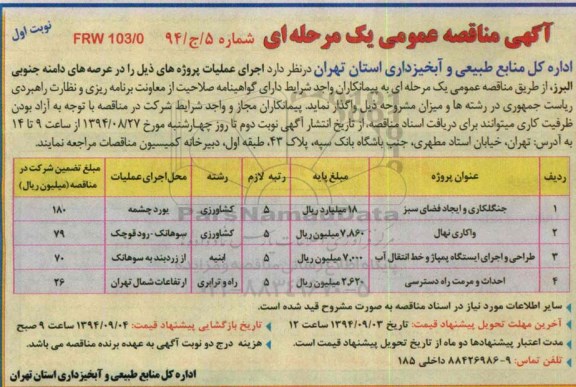 نوبت اول
آگهی مناقصه عمومی یک مرحله ای شماره ۹۴/ج/۵ FRW 103/0
اداره کل منابع طبیعی و آبخیزداری استان تهران درنظر دارد اجرای عملیات پروژه های ذیل را در عرصه های دامنه جنوبی
البرز، از طریق مناقصه عمومی یک مرحله ای به پیمانکاران واجد شرایط دارای گواهینامه صلاحیت از معاونت برنامه ریزی و نظارت راهبردی
ریاست جمهوری در رشته ها و میزان مشروحه ذیل واگذار نماید. پیمانکاران مجاز و واجد شرایط شرکت در مناقصه با توجه به آزاد بودن
ظرفیت کاری میتوانند برای دریافت اسناد مناقصه، از تاریخ انتشار آگهی نوبت دوم تا روز چهارشنبه مورخ ۱۳۹۴/۰۸/۲۷ از ساعت ۹ تا ۱۴
به آدرس: تهران، خیابان استاد مطهری، جنب باشگاه بانک سپه، پلاک ۴۳، طبقه اول، دبیرخانه کمیسیون مناقصات مراجعه نمایند.
ردیف عنوان پروژه مبلغ پایه رتبه لازم رشته محل اجرای عملیات مبلغ تضمین شرکت در مناقصه (میلیون ریال)
۱ جنگلکاری و ایجاد فضای سبز ۱۸ میلیارد ریال ۵ کشاورزی یورد چشمه ۱۸۰
۲ واکاری نهال ۷،۸۶۰ میلیون ریال ۵ کشاورزی سوهانک - رودقوچک ۷۹
۳ طراحی و اجرای ایستگاه پمپاژ و خط انتقال آب ۷،۰۰۰ میلیون ریال ۵ ابنیه از زردبند به سوهانک ۷۰
۴ احداث و مرمت راه دسترسی ۲،۶۲۰ میلیون ریال ۵ راه و ترابری ارتفاعات شمال تهران ۲۶
سایر اطلاعات مورد نیاز در اسناد مناقصه به صورت مشروح قید شده است.
آخرین مهلت تحویل پیشنهاد قیمت: تاریخ ۱۳۹۴/۰۹/۰۳ ساعت ۱۲
تاریخ بازگشایی پیشنهاد قیمت: ۱۳۹۴/۰۹/۰۴ ساعت ۹ صبح
مدت اعتبار پیشنهادها دو ماه از تاریخ تحویل پیشنهاد قیمت است.
هزینه درج دو نوبت آگهی به عهده برنده مناقصه می باشد.
تلفن تماس: ۹-۸۸۴۲۶۹۸۶ داخلی ۱۸۵
اداره کل منابع طبیعی و آبخیزداری استان تهران